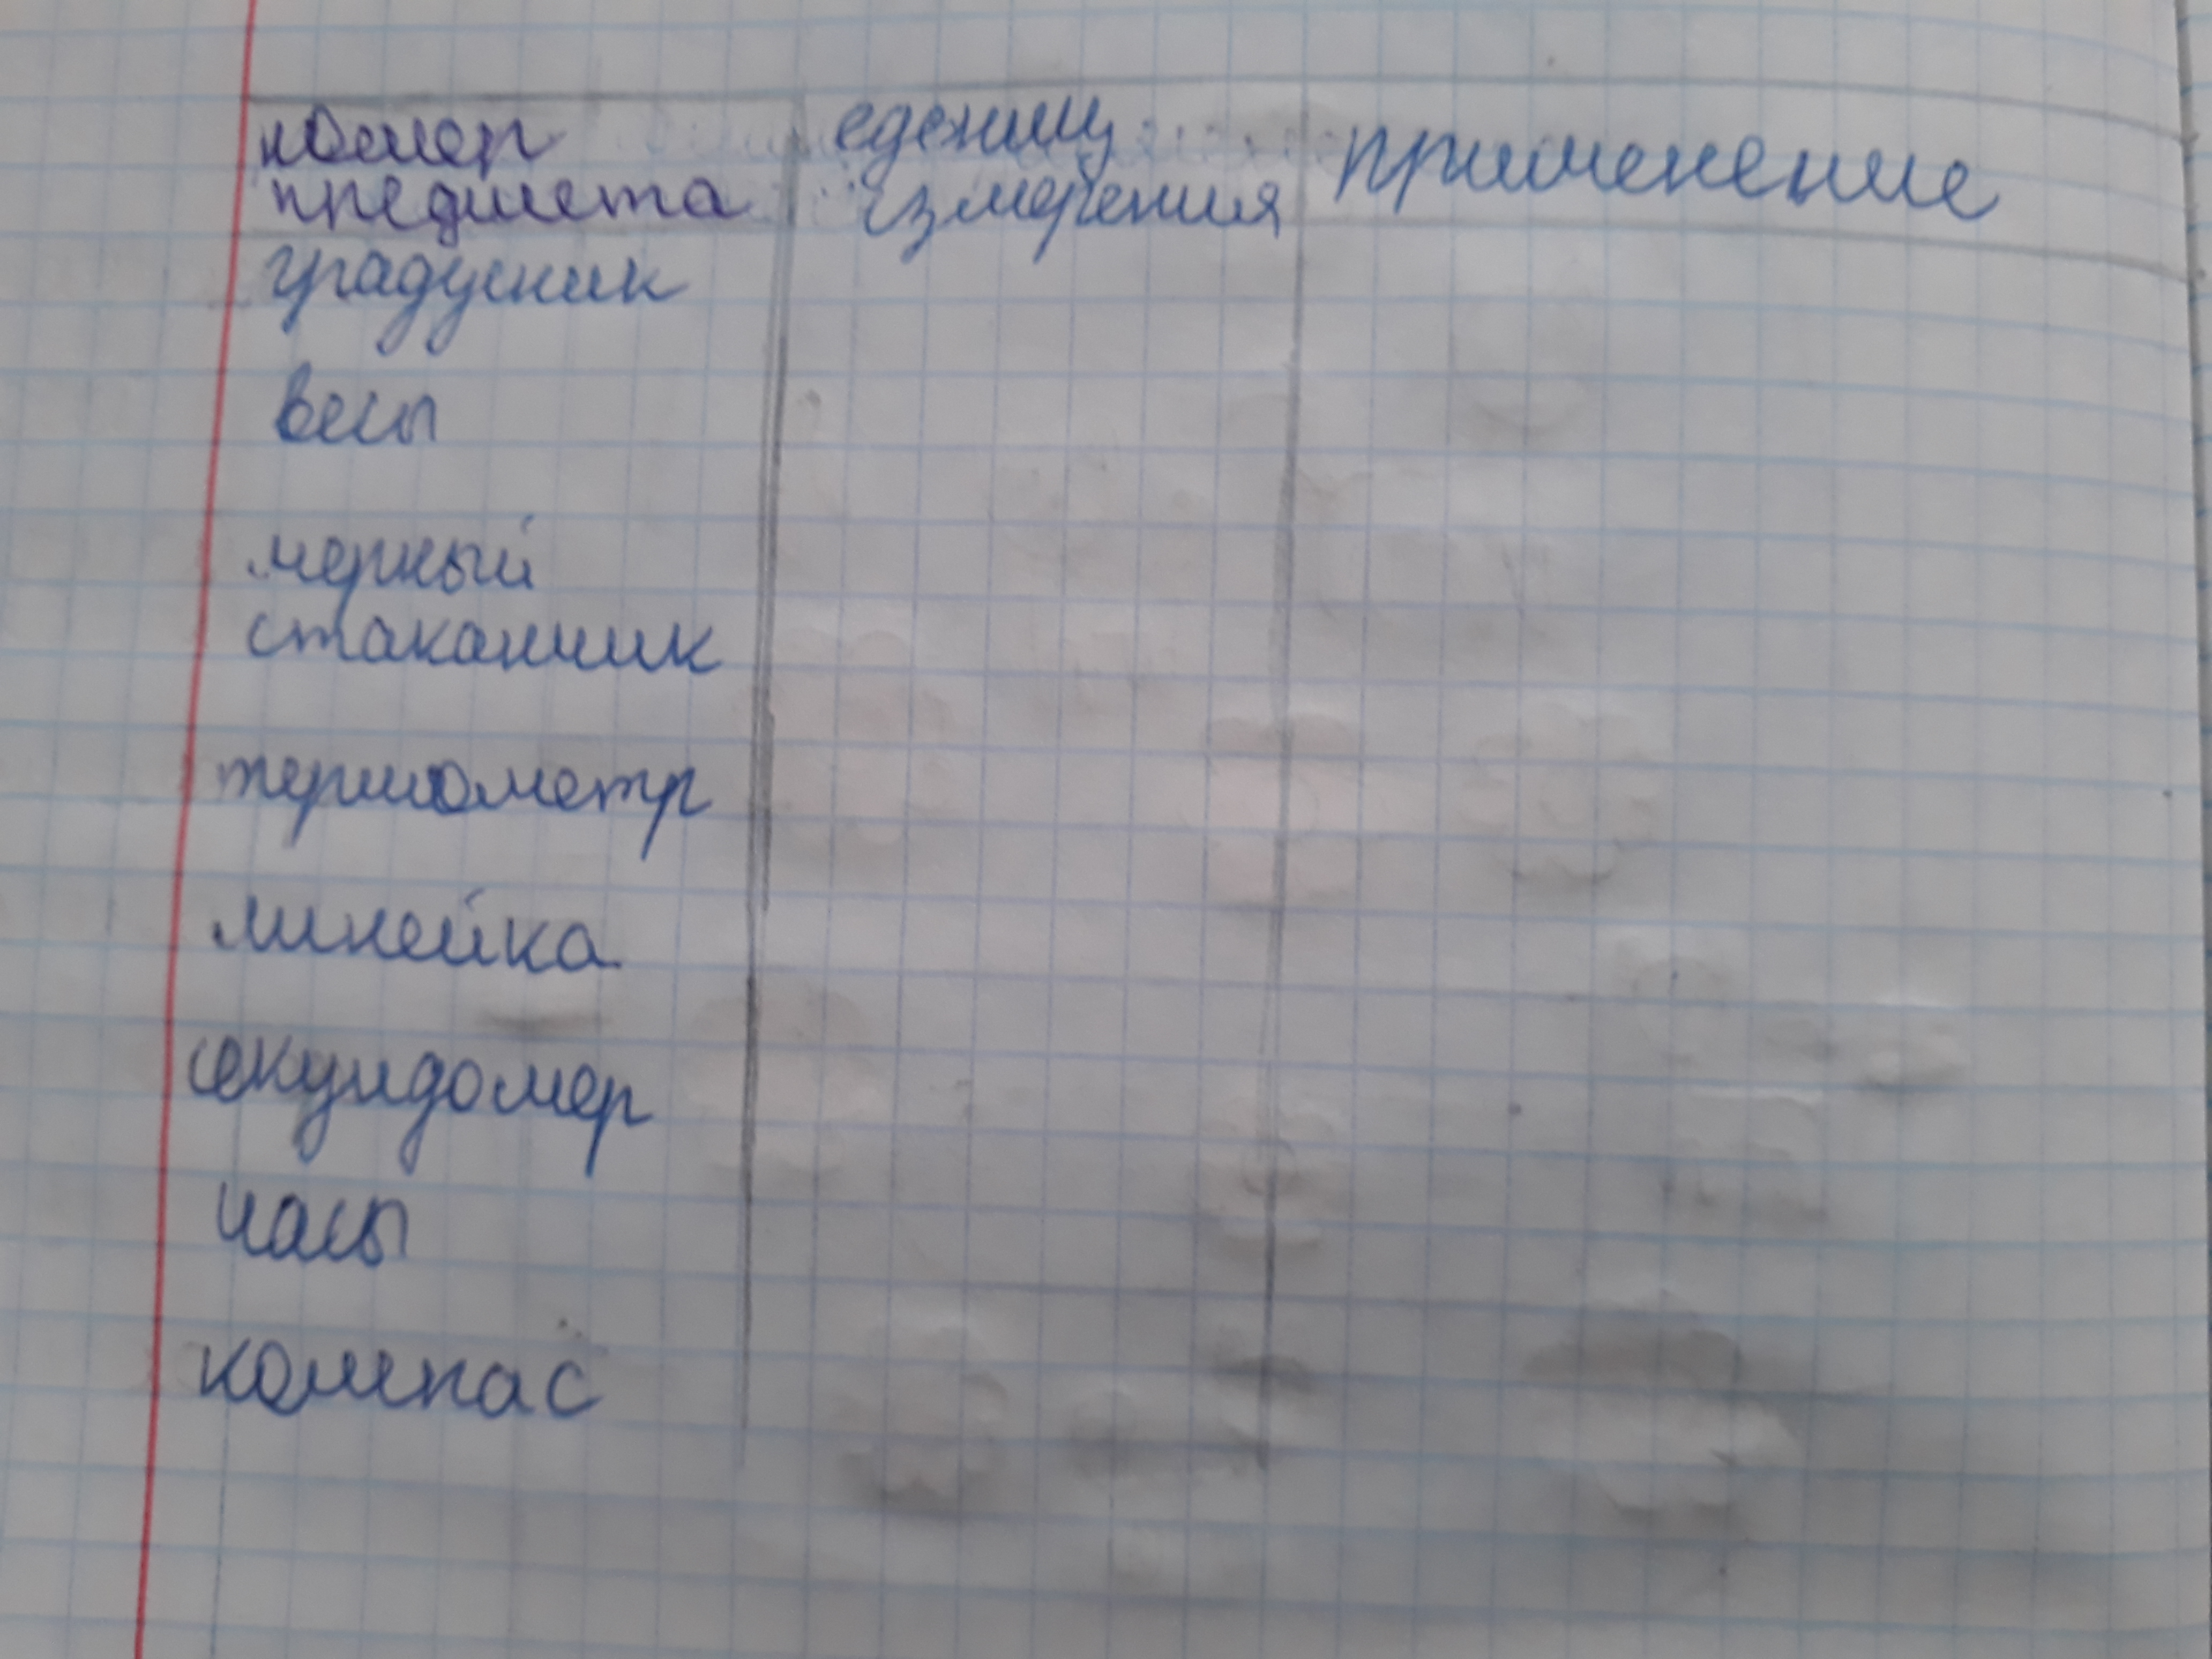 номер
предмета
еденищ
измерения
применение
градусник
весы
мерный
стаканчик
термометр
линейка
секундомер
часы
компас